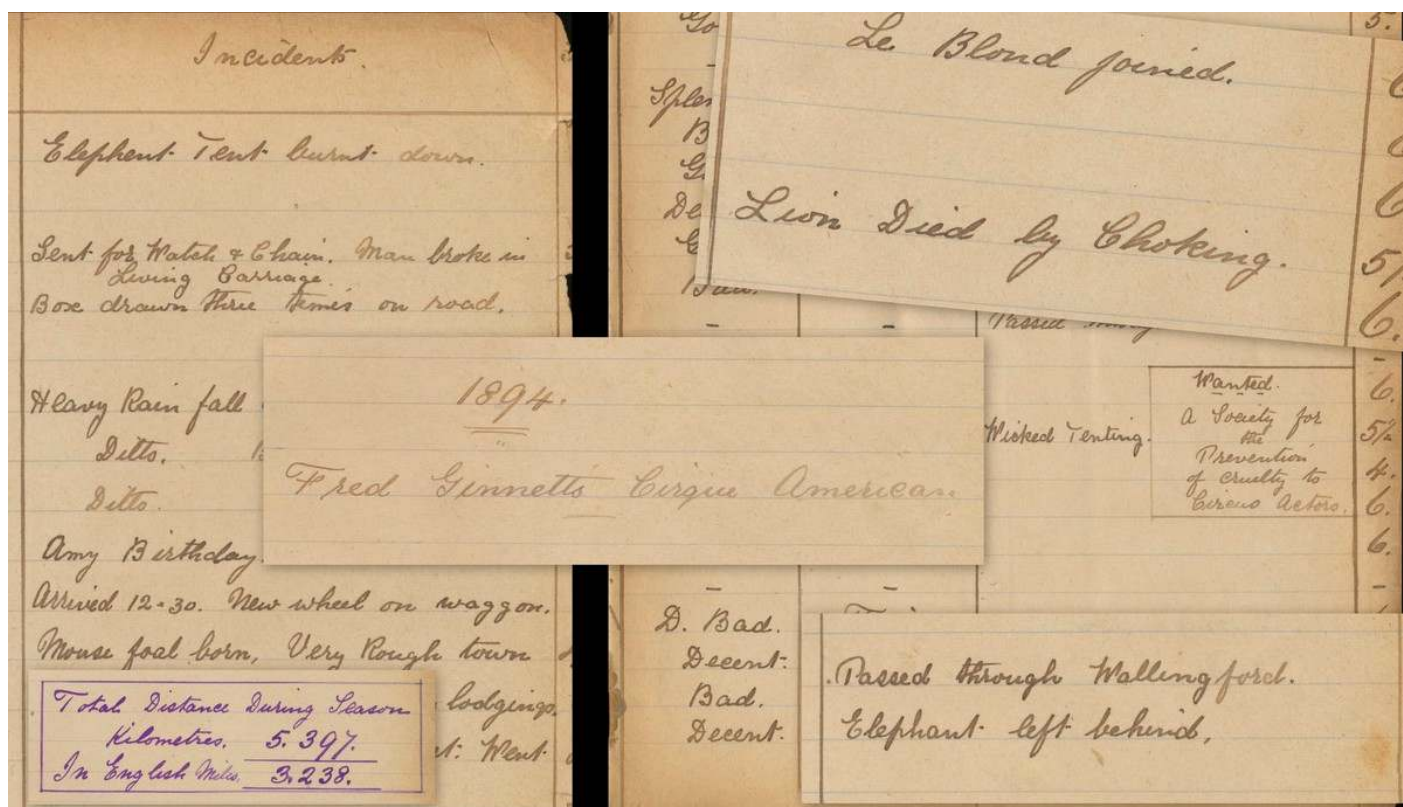 Incidents.
Elephent Tent burnt down.
Sent for Watch & Chain. Man broke in
Living Carriage.
Box drawn three times on road.
Heavy Rain fall
Ditto.
Ditto.
Amy Birthday.
Arrived 12-30. New wheel on waggon.
Mouse foal born, Very Rough town
lodgings.
t. Went
Total Distance During Season
Kilometres. 5.397.
In English Miles. 3.238.
1894.
Fred Ginnett's Cirque American
Le Blond joined.
Lion Died by Choking.
5/
6.
Passed
Wicked Tenting.
Wanted.
A Society for
the
Prevention
of cruelty to
Circus Actors.
6.
5/2
4.
6.
6.
D. Bad.
Decent.
Bad.
Decent.
Passed through Wallingford.
Elephant left behind.